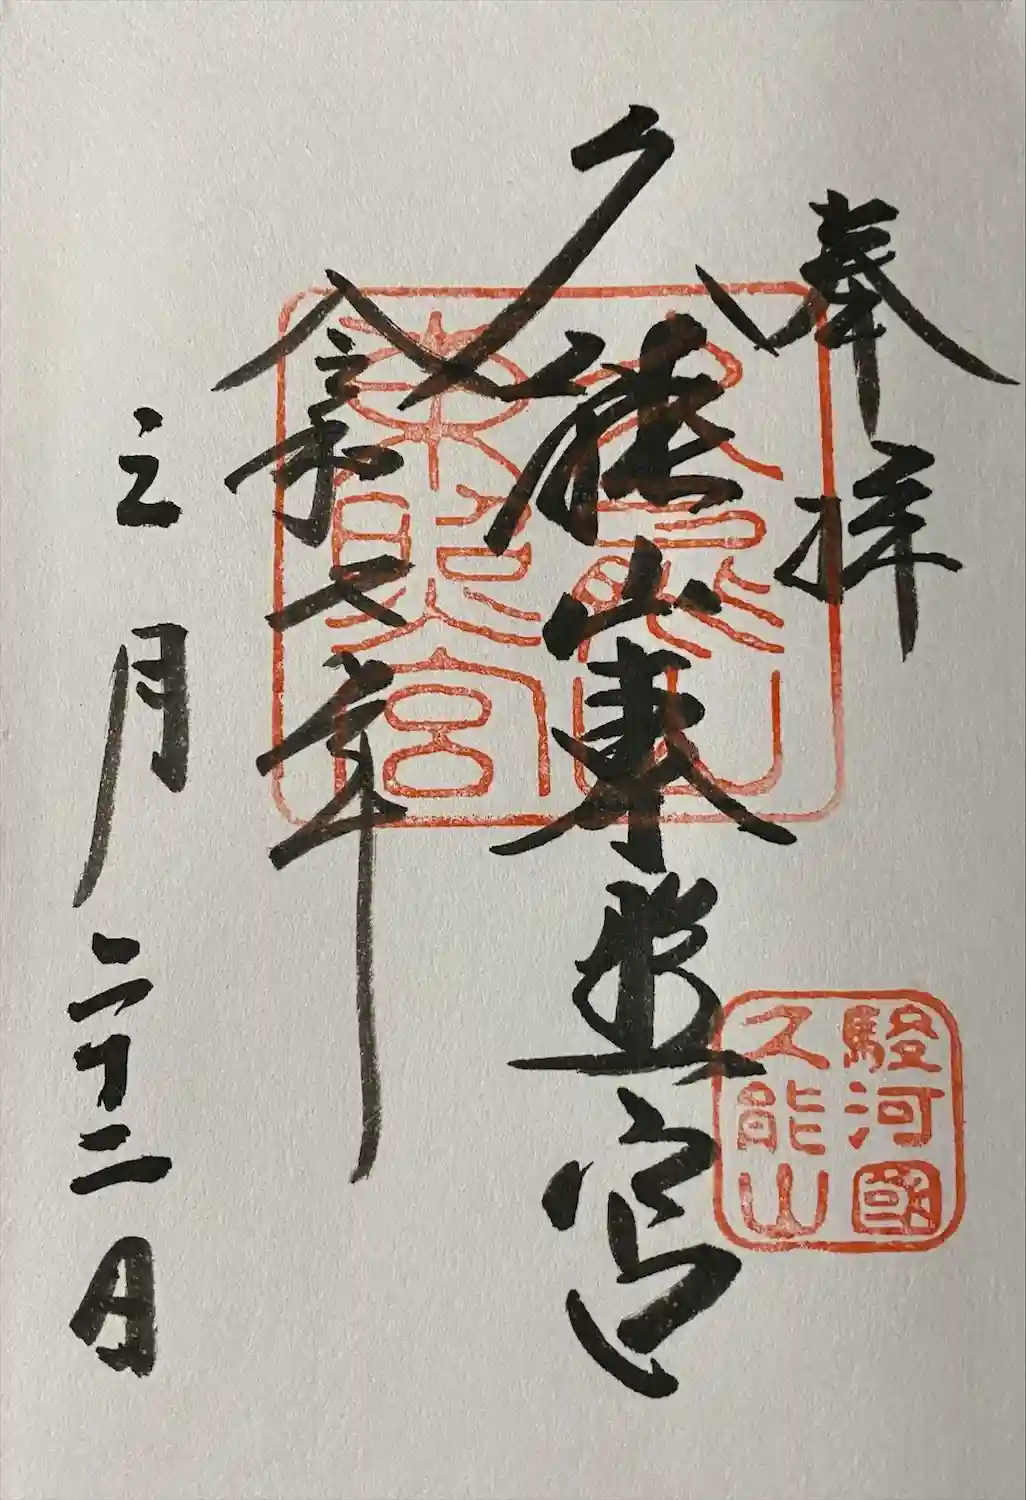 奉拝
久能山東照宮
令和六年
三月二十二日
久能山
東照宮
駿河國
久能山